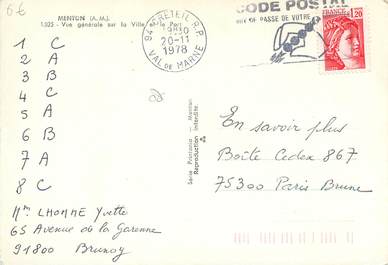 6€
MENTON (A.M.)
1.025 - Vue générale sur la Ville et le Port
94 CRETEIL R.P.
19H10
20-11
1978
VAL DE MARNE
CODE POSTAL
MOT DE PASSE DE VOTRE
FRANCE 1,20
1 C
2 A
3 B
4 C
5 A
6 B
7 A
8 C
Mme LHOMME Yvette
65 Avenue de la Garenne
91800 Brunoy
Série Provencia - Menton
Reproduction interdite.
En savoir plus
Boîte Cedex 867
75300 Paris Brune